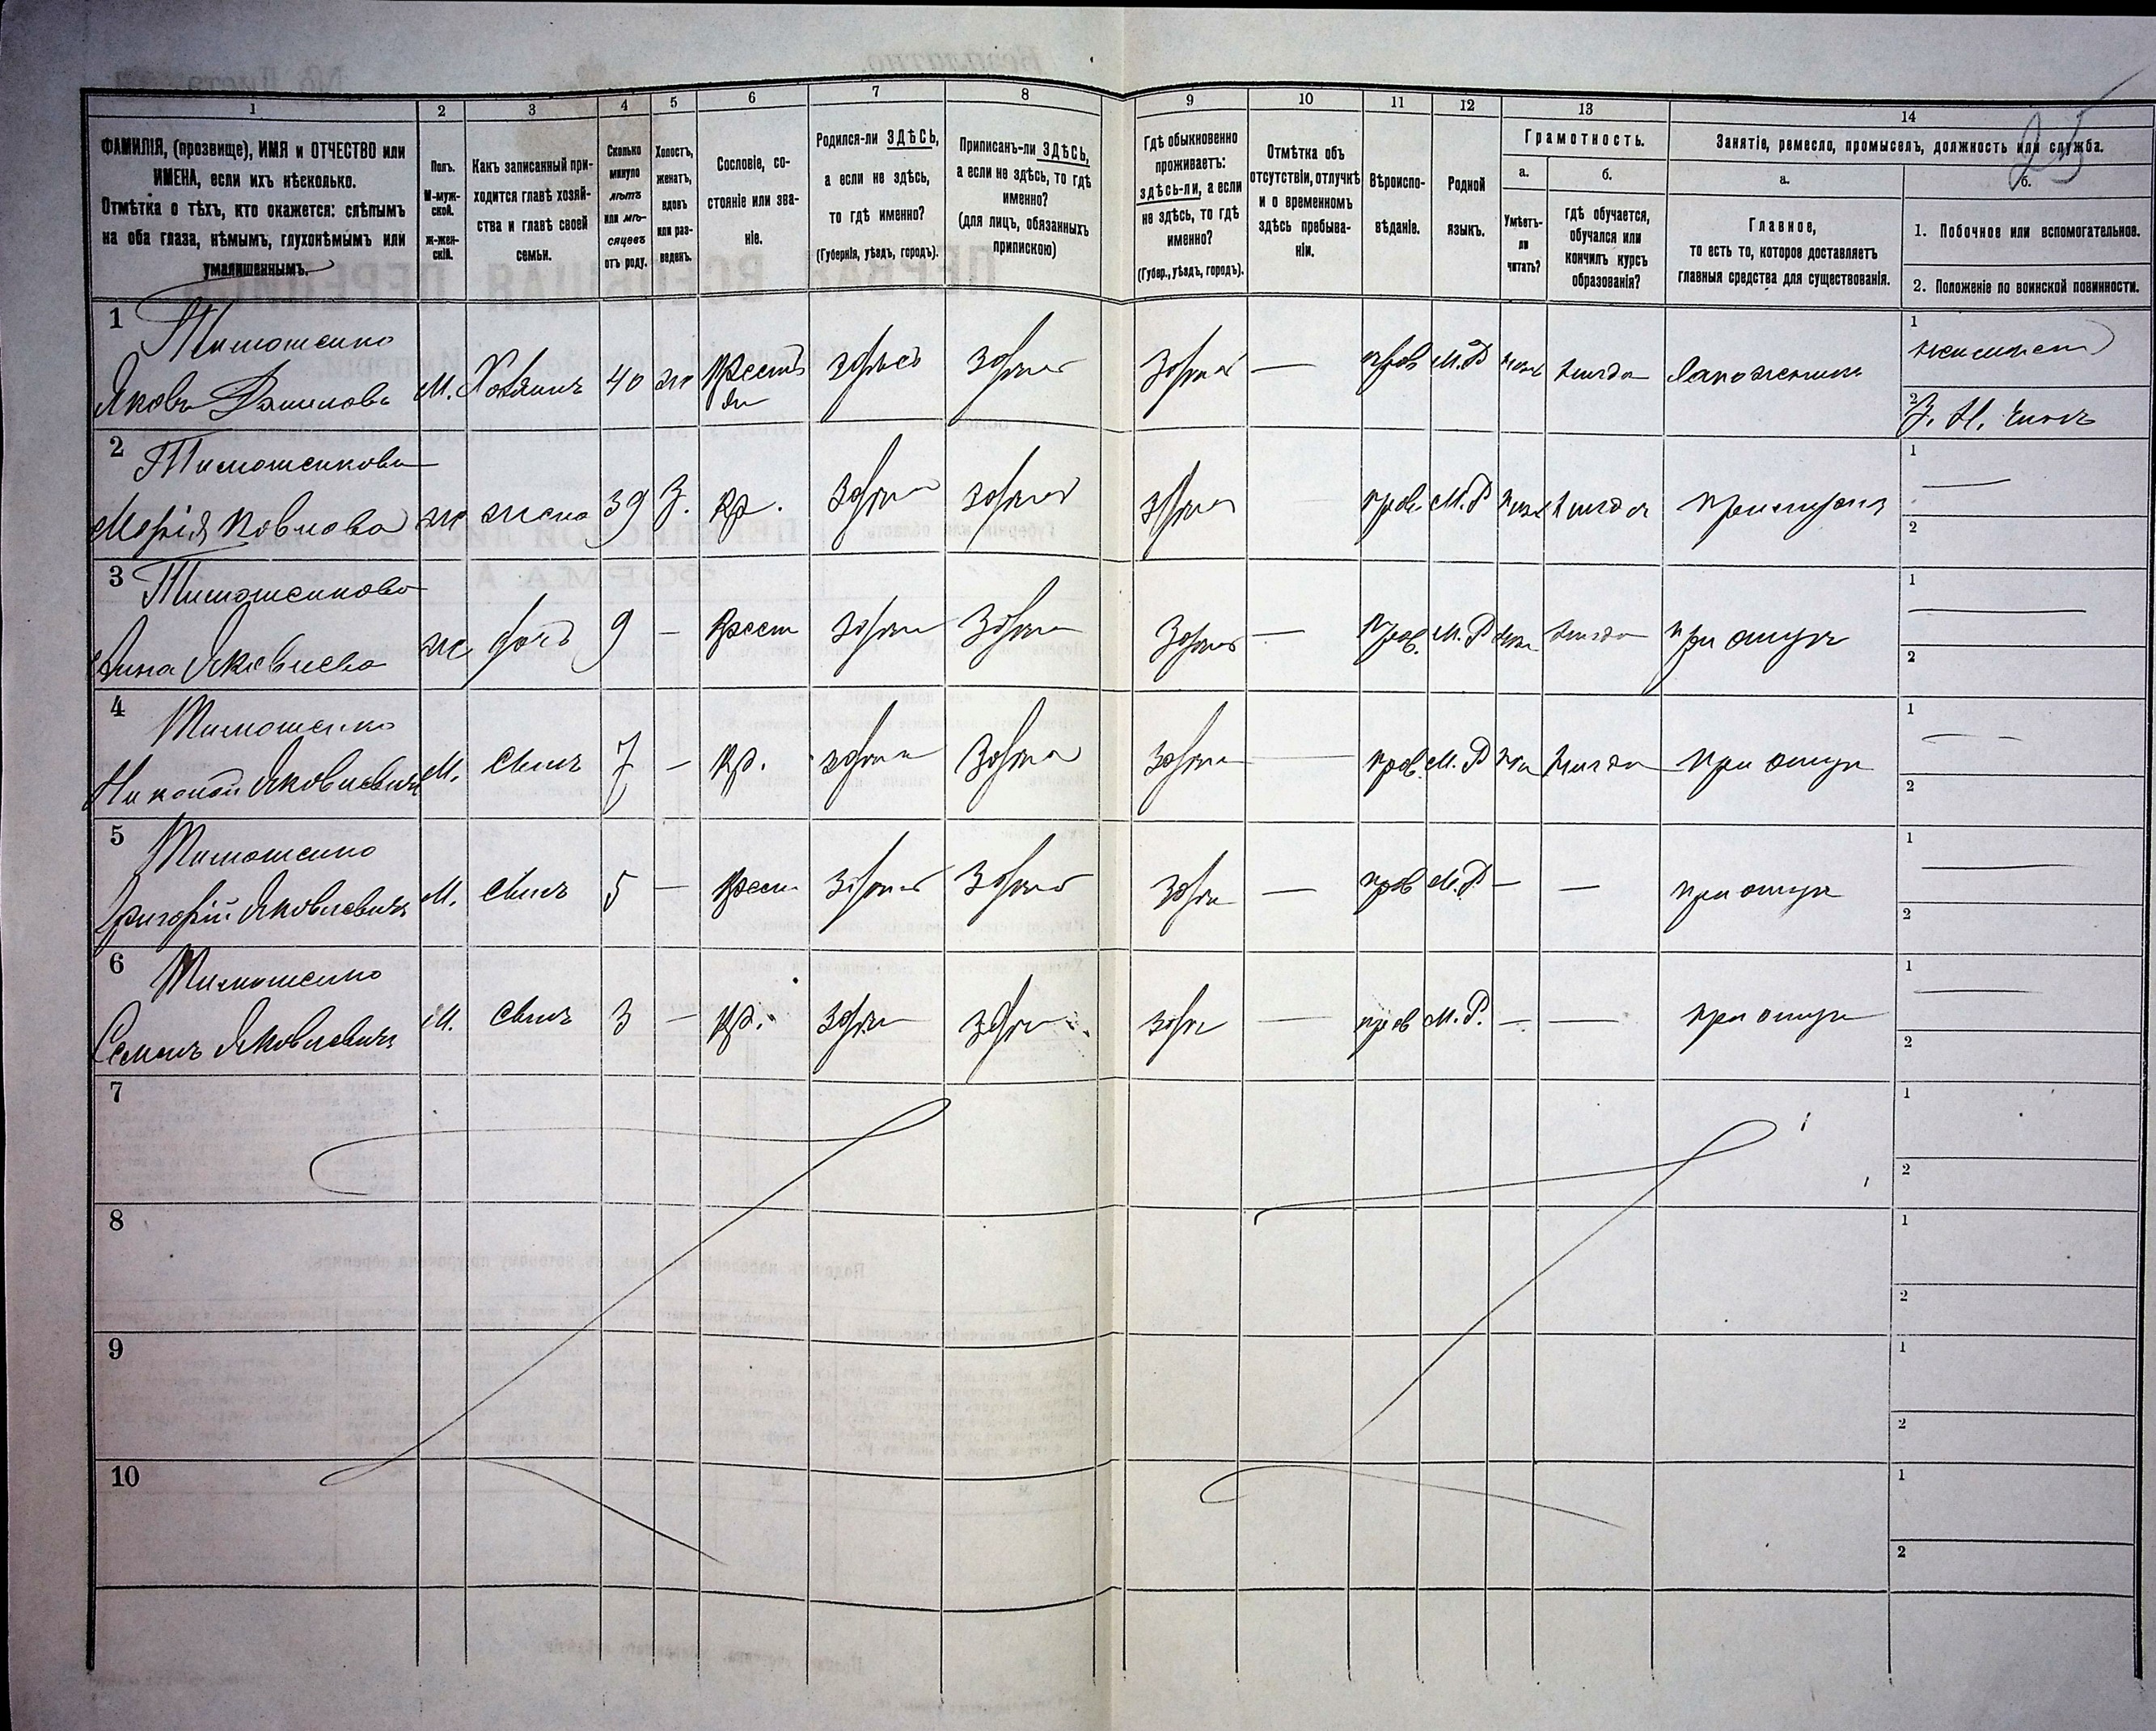 1 2 3 4 5 6 7 8 9 10 11 12 13 14
25
ФАМИЛІЯ, (прозвище), ИМЯ и ОТЧЕСТВО или
ИМЕНА, если ихъ нѣсколько.
Отмѣтка о тѣхъ, кто окажется: слѣпымъ
на оба глаза, нѣмымъ, глухонѣмымъ или
умалишеннымъ.
Полъ.
М-муж-
ской.
Ж-жен-
скій.
Какъ записанный при-
ходится главѣ хозяй-
ства и главѣ своей
семьи.
Сколько
минуло
лѣтъ
или мѣ-
сяцевъ
отъ роду.
Холостъ,
женатъ,
вдовъ
или раз-
веденъ.
Сословіе, со-
стояніе или зва-
ніе.
Родился-ли ЗДѢСЬ,
а если не здѣсь,
то гдѣ именно?
(Губернія, уѣздъ, городъ).
Приписанъ-ли ЗДѢСЬ,
а если не здѣсь, то гдѣ
именно?
(для лицъ, обязанныхъ
припискою)
Гдѣ обыкновенно
проживаетъ:
здѣсь-ли, а если
не здѣсь, то гдѣ
именно?
(Губер., уѣздъ, городъ).
Отмѣтка объ
отсутствіи, отлучкѣ
и о временномъ
здѣсь пребыва-
ніи.
Вѣроиспо-
вѣданіе.
Родной
языкъ.
Грамотность.
а.
Умѣетъ-
ли
читать?
б.
гдѣ обучается,
обучался или
кончилъ курсъ
образованія?
Занятіе, ремесло, промыселъ, должность или служба.
а.
Главное,
то есть то, которое доставляетъ
главныя средства для существованія.
б.
1. Побочное или вспомогательное.
2. Положеніе по воинской повинности.
1 Тимошенко
Яковъ М. Хозяинъ 40 ж Крестья здѣсь здѣсь здѣсь — прав М.Р —
1
2
2 Тимошенкова
Марія Павлова ж жена 39 З. Кр. здѣсь здѣсь здѣсь прав. М.Р
1 —
2
3 Тимошенкова
Анна Яковлева ж дочь 9 — Крест здѣсь здѣсь здѣсь — Прав. М.Р при отцѣ
1 —
2
4 Тимошенко
Яковлевичъ М. сынъ 7 — Кр. здѣсь здѣсь здѣсь — прав. М.Р при отцѣ
1 —
2
5 Тимошенко
Григорій Яковлевичъ М. сынъ 5 — Крест здѣсь здѣсь здѣсь — прав М.Р. — — при отцѣ
1 —
2
6 Тимошенко
Семенъ Яковлевичъ М. сынъ 3 — Кр. здѣсь здѣсь здѣсь — прав М.Р. — — при отцѣ
1 —
2
7
1
2
8
1
2
9
1
2
10
1
2